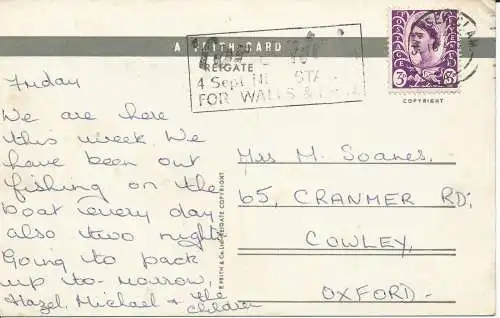 A FRITH CARD
REIGATE
4 Sept
FOR WALES &
3D 3D
COPYRIGHT
Friday
We are here
this week. We
have been out
fishing on the
boat every day
also two nights
Going to pack
up to-morrow,
Hazel, Michael & the
children
F. FRITH & Co. Ltd. REIGATE COPYRIGHT
Mrs M. Soanes.
65, CRANMER RD;
COWLEY,
OXFORD.